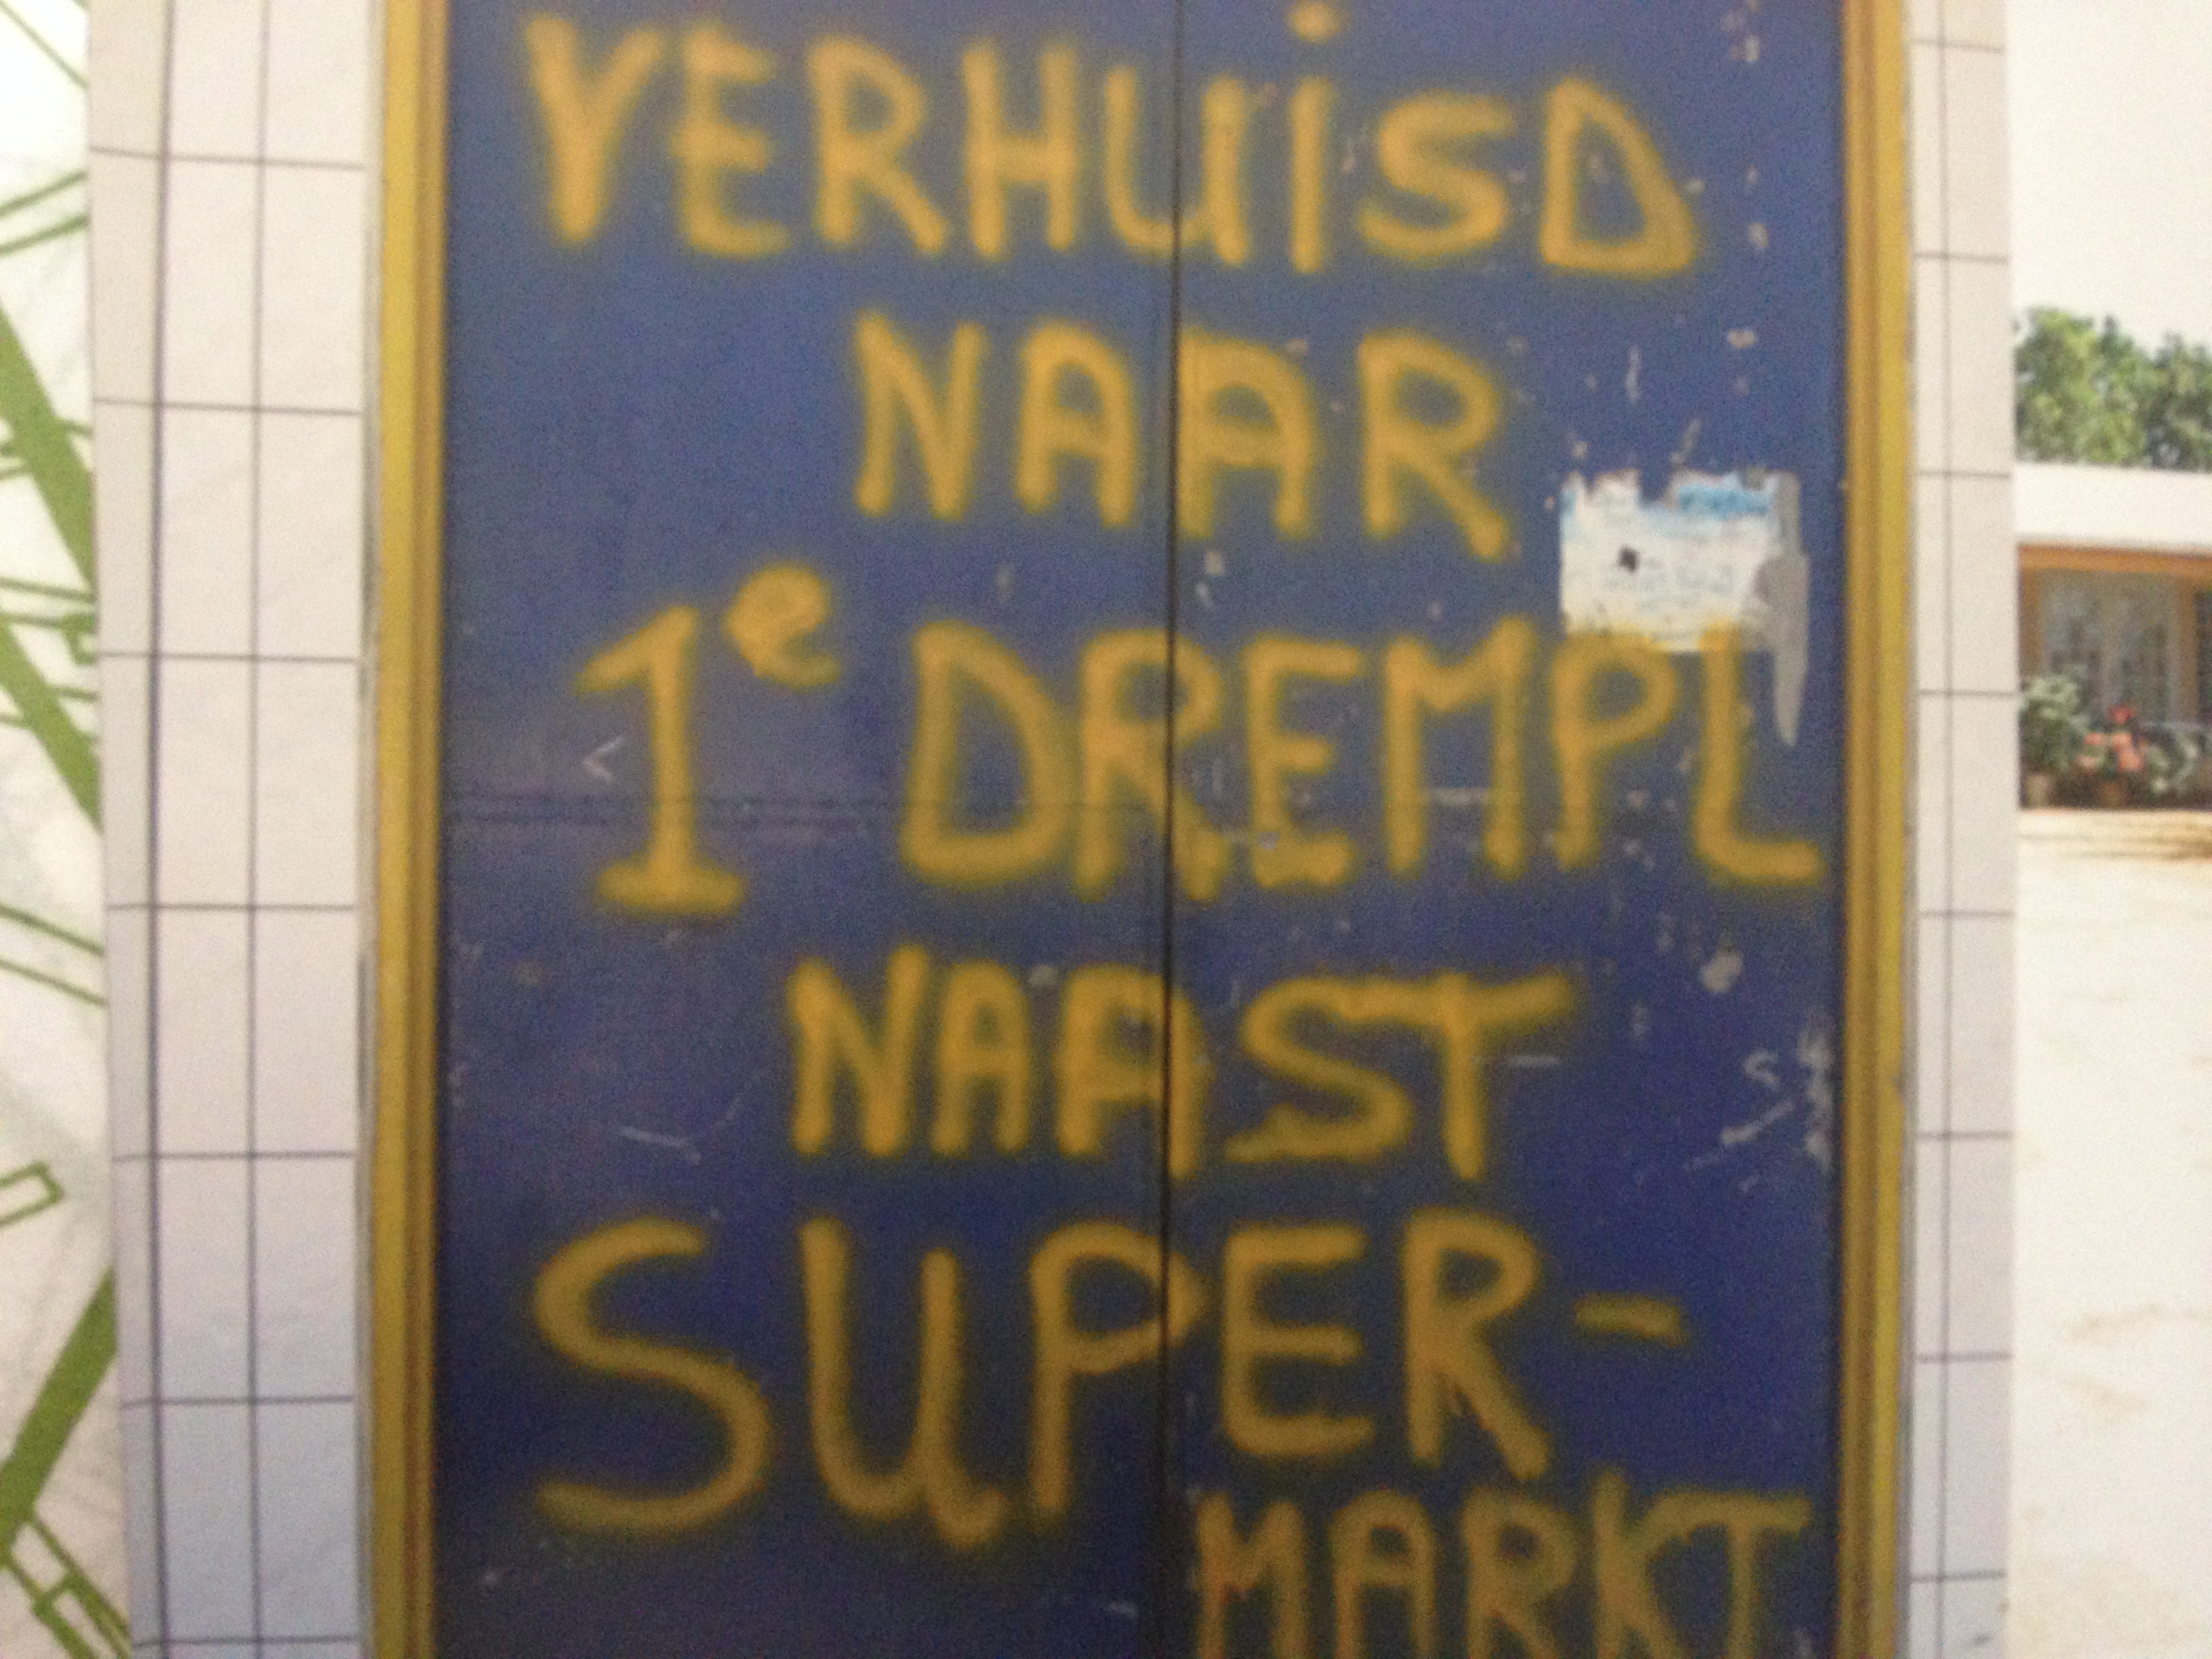 VERHUiSD
NAAR
1e DREMPL
NAAST
SUPER-
MARKT